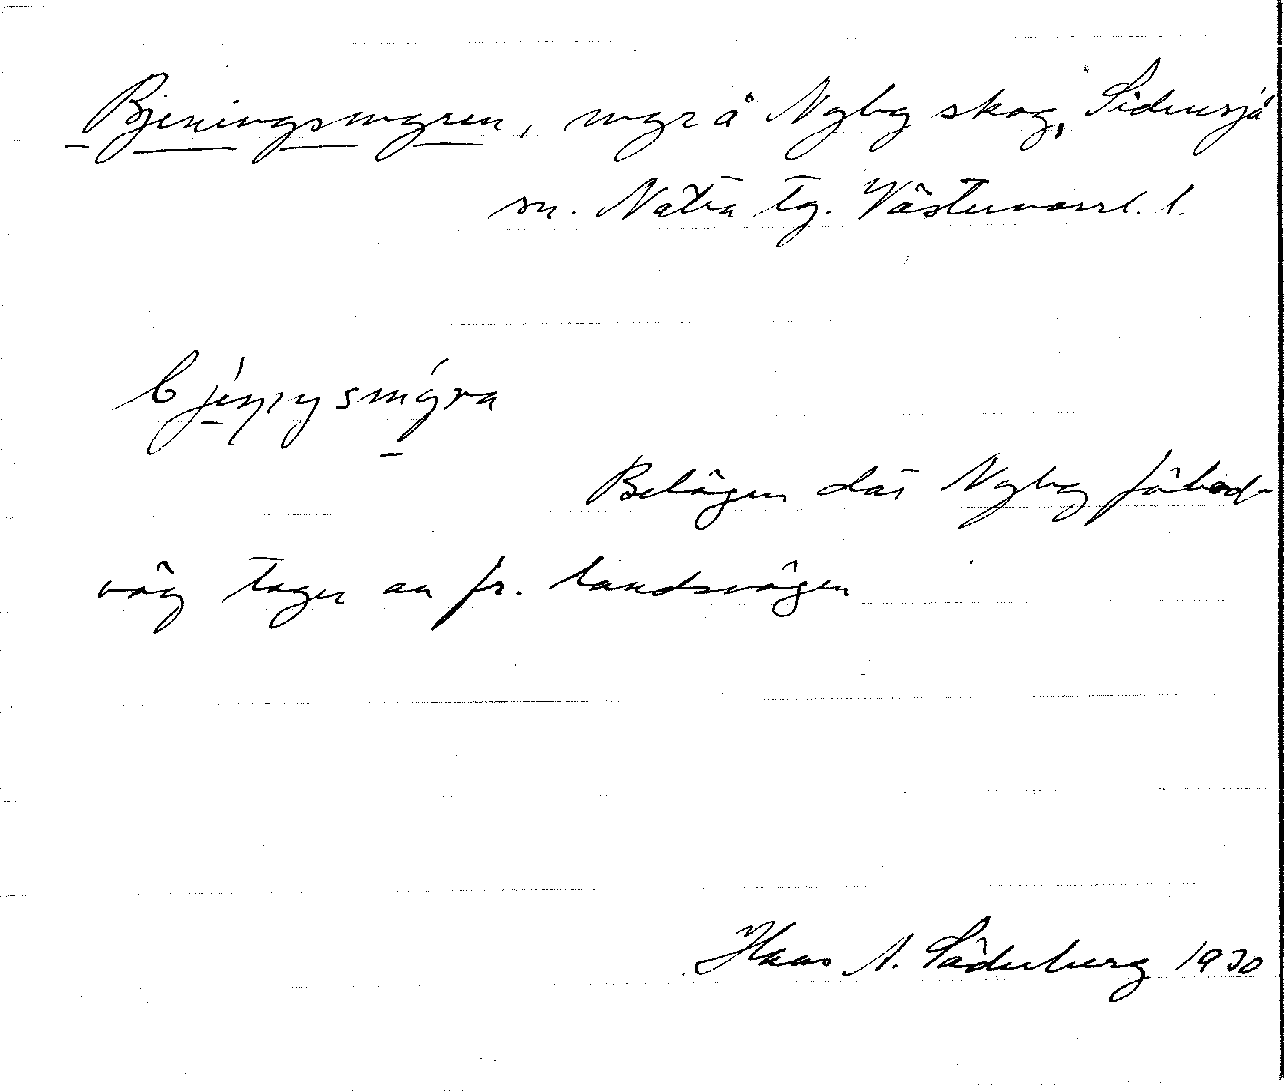 Bjeningsmyren, myr å Nyby skog, Sidensjö
sn. Nätra tg. Västernorrl. l.
Belägen där Nyby fäbod-
väg tager av fr. landsvägen
Hans A. Söderberg 1930